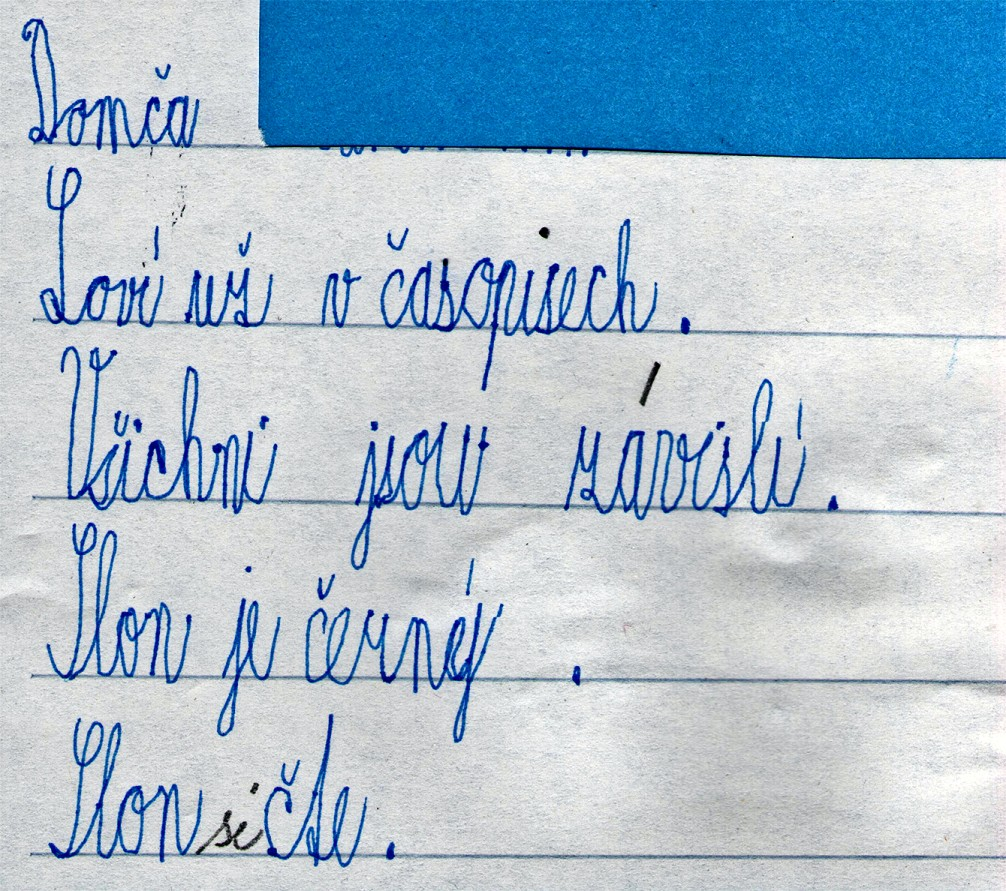 Domča
Loví už v časopisech.
Všichni jsou závislí.
Slon je černý.
Slon si čte.